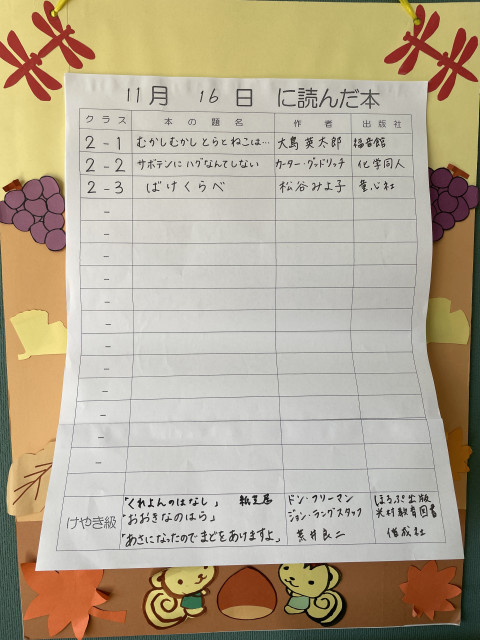 11月 16日 に読んだ本
クラス 本の題名 作者 出版社
2-1 むかしむかしとらとねこは… 大島英太郎 福音館
2-2 サボテンにハグなんてしない カーター・グッドリッチ 化学同人
2-3 ばけくらべ 松谷みよ子 童心社
-
-
-
-
-
-
-
-
-
-
けやき級
「くれよんのはなし」 紙芝居 ドン・フリーマン ほるぷ出版
"おおきなのはら" ジョン・ラングスタッフ 光村教育図書
「あさになったのでまどをあけますよ」 荒井良二 偕成社